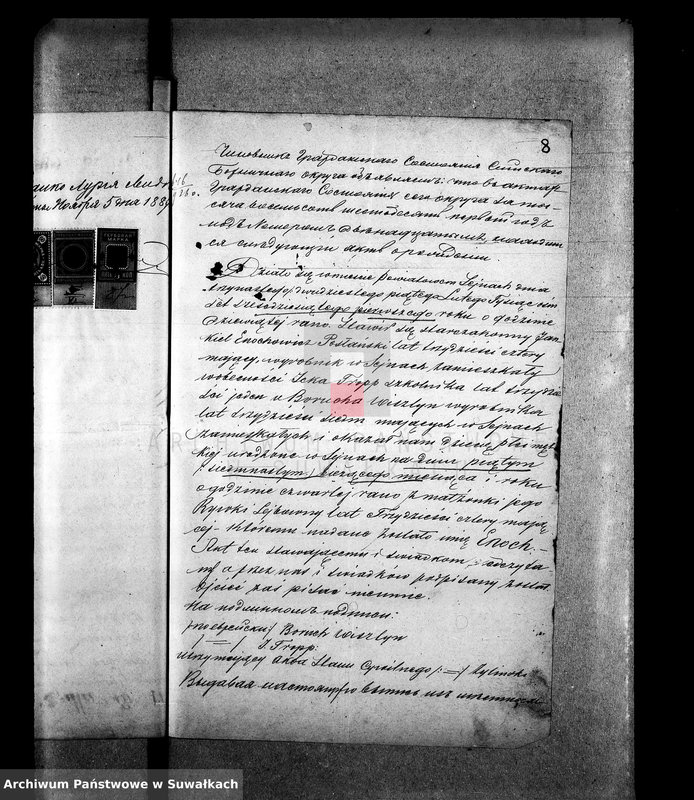 8
Чиновникъ Гражданскаго Состоянія Сейнскаго
Божничнаго округа объявляетъ: что въ актахъ
Гражданскаго Состоянія сего округа за тыс-
яча восемьсотъ шестьдесятъ первый годъ
подъ Номеромъ двенадцатымъ, находит-
ся следующій актъ о рожденіи.
Działo się w mieście powiatowem Sejnach dnia
trzynastego/dwudziestego piątego Lutego Tysiąc ośm
set sześćdziesiątego pierwszego roku o godzinie
dziewiątej rano. Stawił się starozakonny Jan-
kiel Enochowicz lat trzydzieści cztery
mający, wyrobnik w Sejnach zamieszkały
w obecności Icka Tropp szkolnika lat trzydzie
ści jeden i Borucha Wisztyn wyrobnika
lat trzydzieści siedm mających w Sejnach
zamieszkałych i okazał nam dziecię płci męz
kiej urodzone w Sejnach na dniu piątym
/: siedmnastym / bieżącego miesiąca i roku
o godzinie czwartej rano z małżonki jego
Rywki Lejbowny lat Trzydzieści cztery mają
cej – któremu nadane zostało imię Enoch. –
Akt ten stawającemu i świadkom odczyta
ny a przez nas i świadków podpisany został
Ojciec zaś pisać nieumie.
На подлинномъ подписи:
/по еврейски/ Boruch Wisztyn
/ = / I. Tropp:
utrzymujący Akta Stanu Cywilnego /: = / Zylinski
Выдавая настоящую выпись изъ
Лурія
Ноября 5 дня 188
ГЕРБОВАЯ
МАРКА
Archiwum Państwowe w Suwałkach